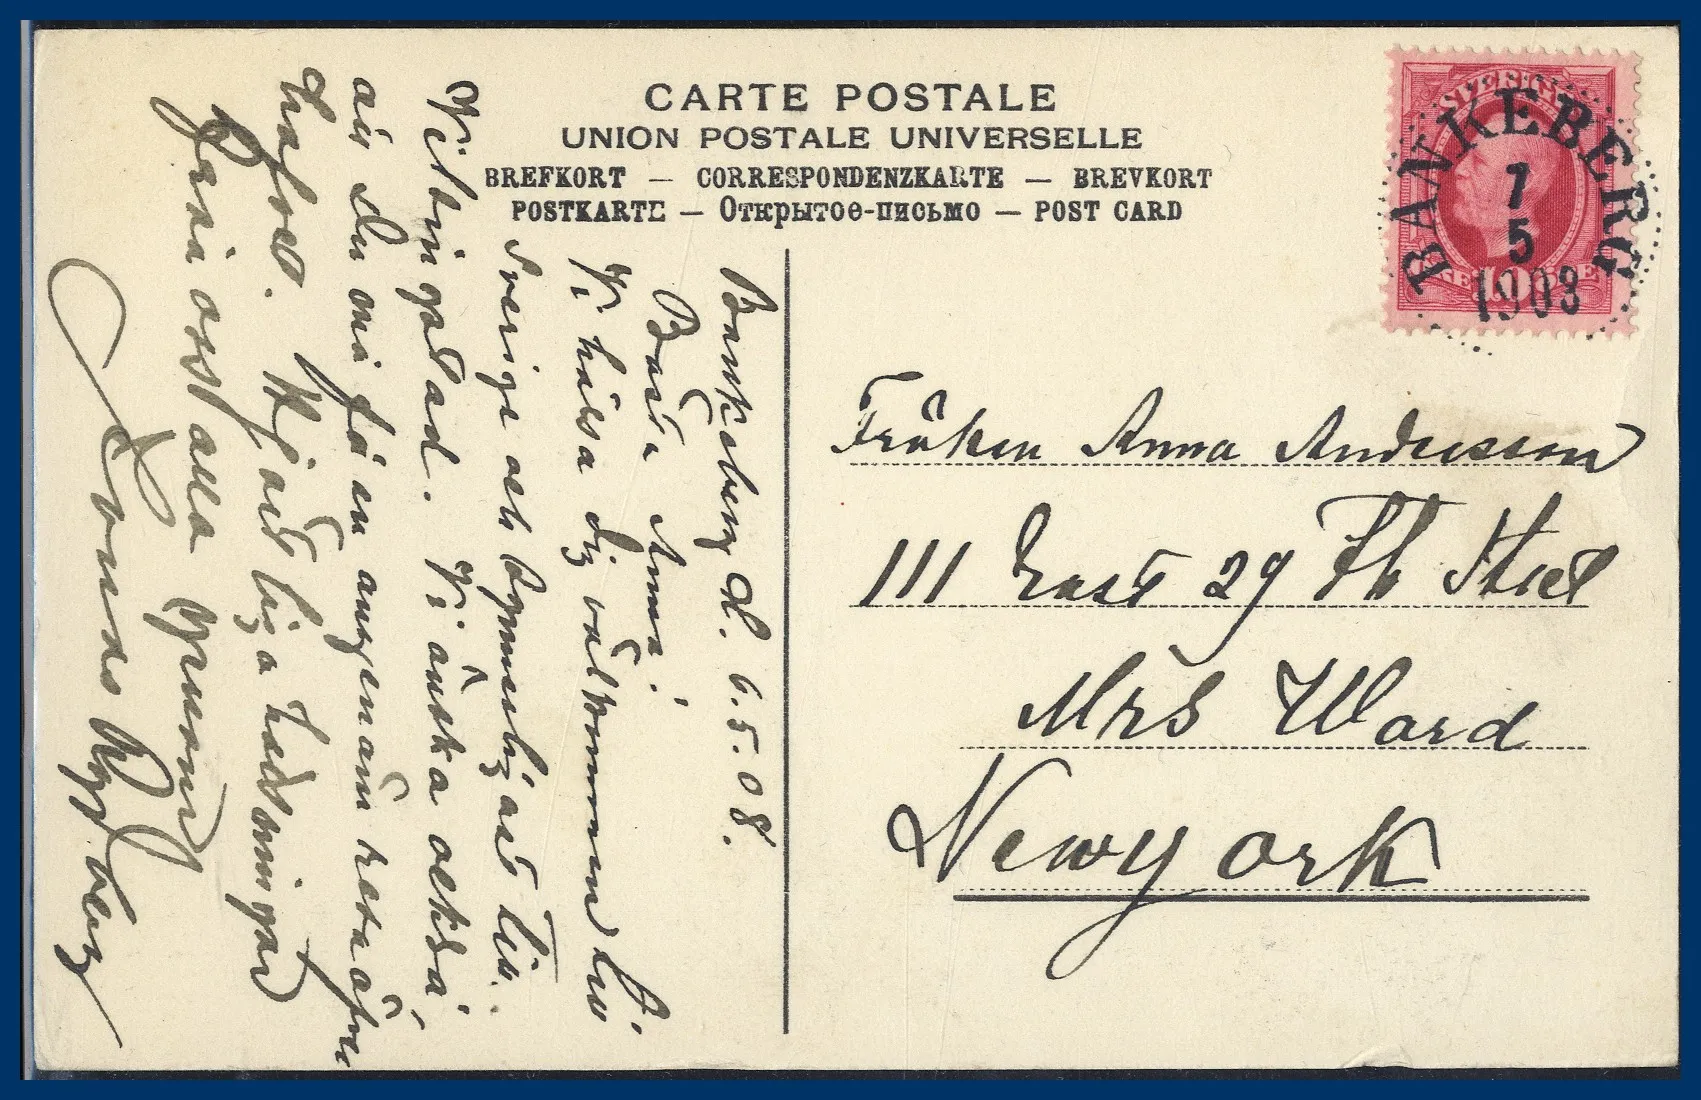 CARTE POSTALE
UNION POSTALE UNIVERSELLE
BREFKORT — CORRESPONDENZKARTE — BREVKORT
POSTKARTE — Открытое-письмо — POST CARD
SVERIGE
10
BANKEBERG
7
5
1908
Fröken Anna Andersson
111 East 29 Th Street
Mrs Ward
New york
Bankeberg d. 6.5.08.
Bästa Anna!
Vi hälsa dig välkommen till
Sverige och
Vi önska också
att du må få en angenäm reta öfver
hafvet. Hjärtliga hälsningar
från oss alla genom
Jonas Rydberg